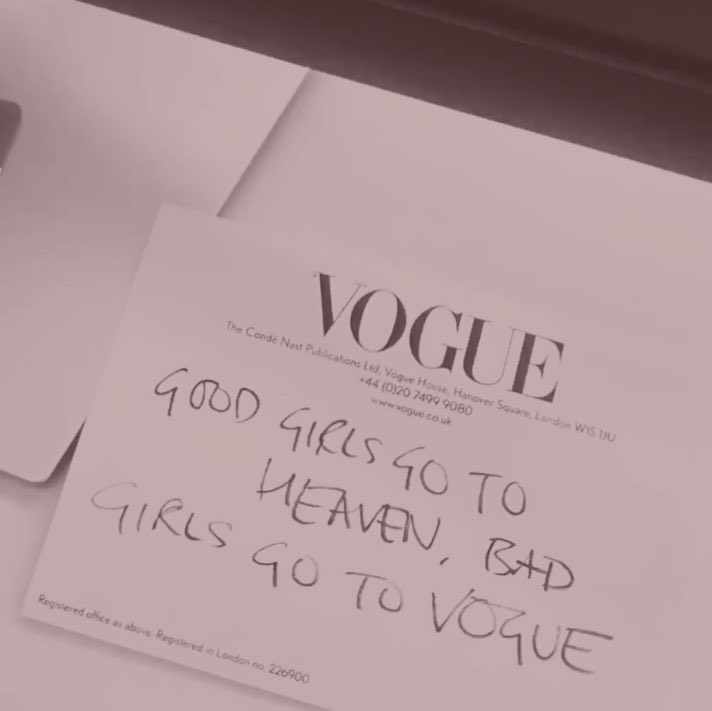 VOGUE
The Condé Nast Publications Ltd, Vogue House, Hanover Square, London W1S 1JU
+44 (0)20 7499 9080
www.vogue.co.uk
GOOD GIRLS GO TO
HEAVEN, BAD
GIRLS GO TO VOGUE
Registered office as above. Registered in London no. 226900